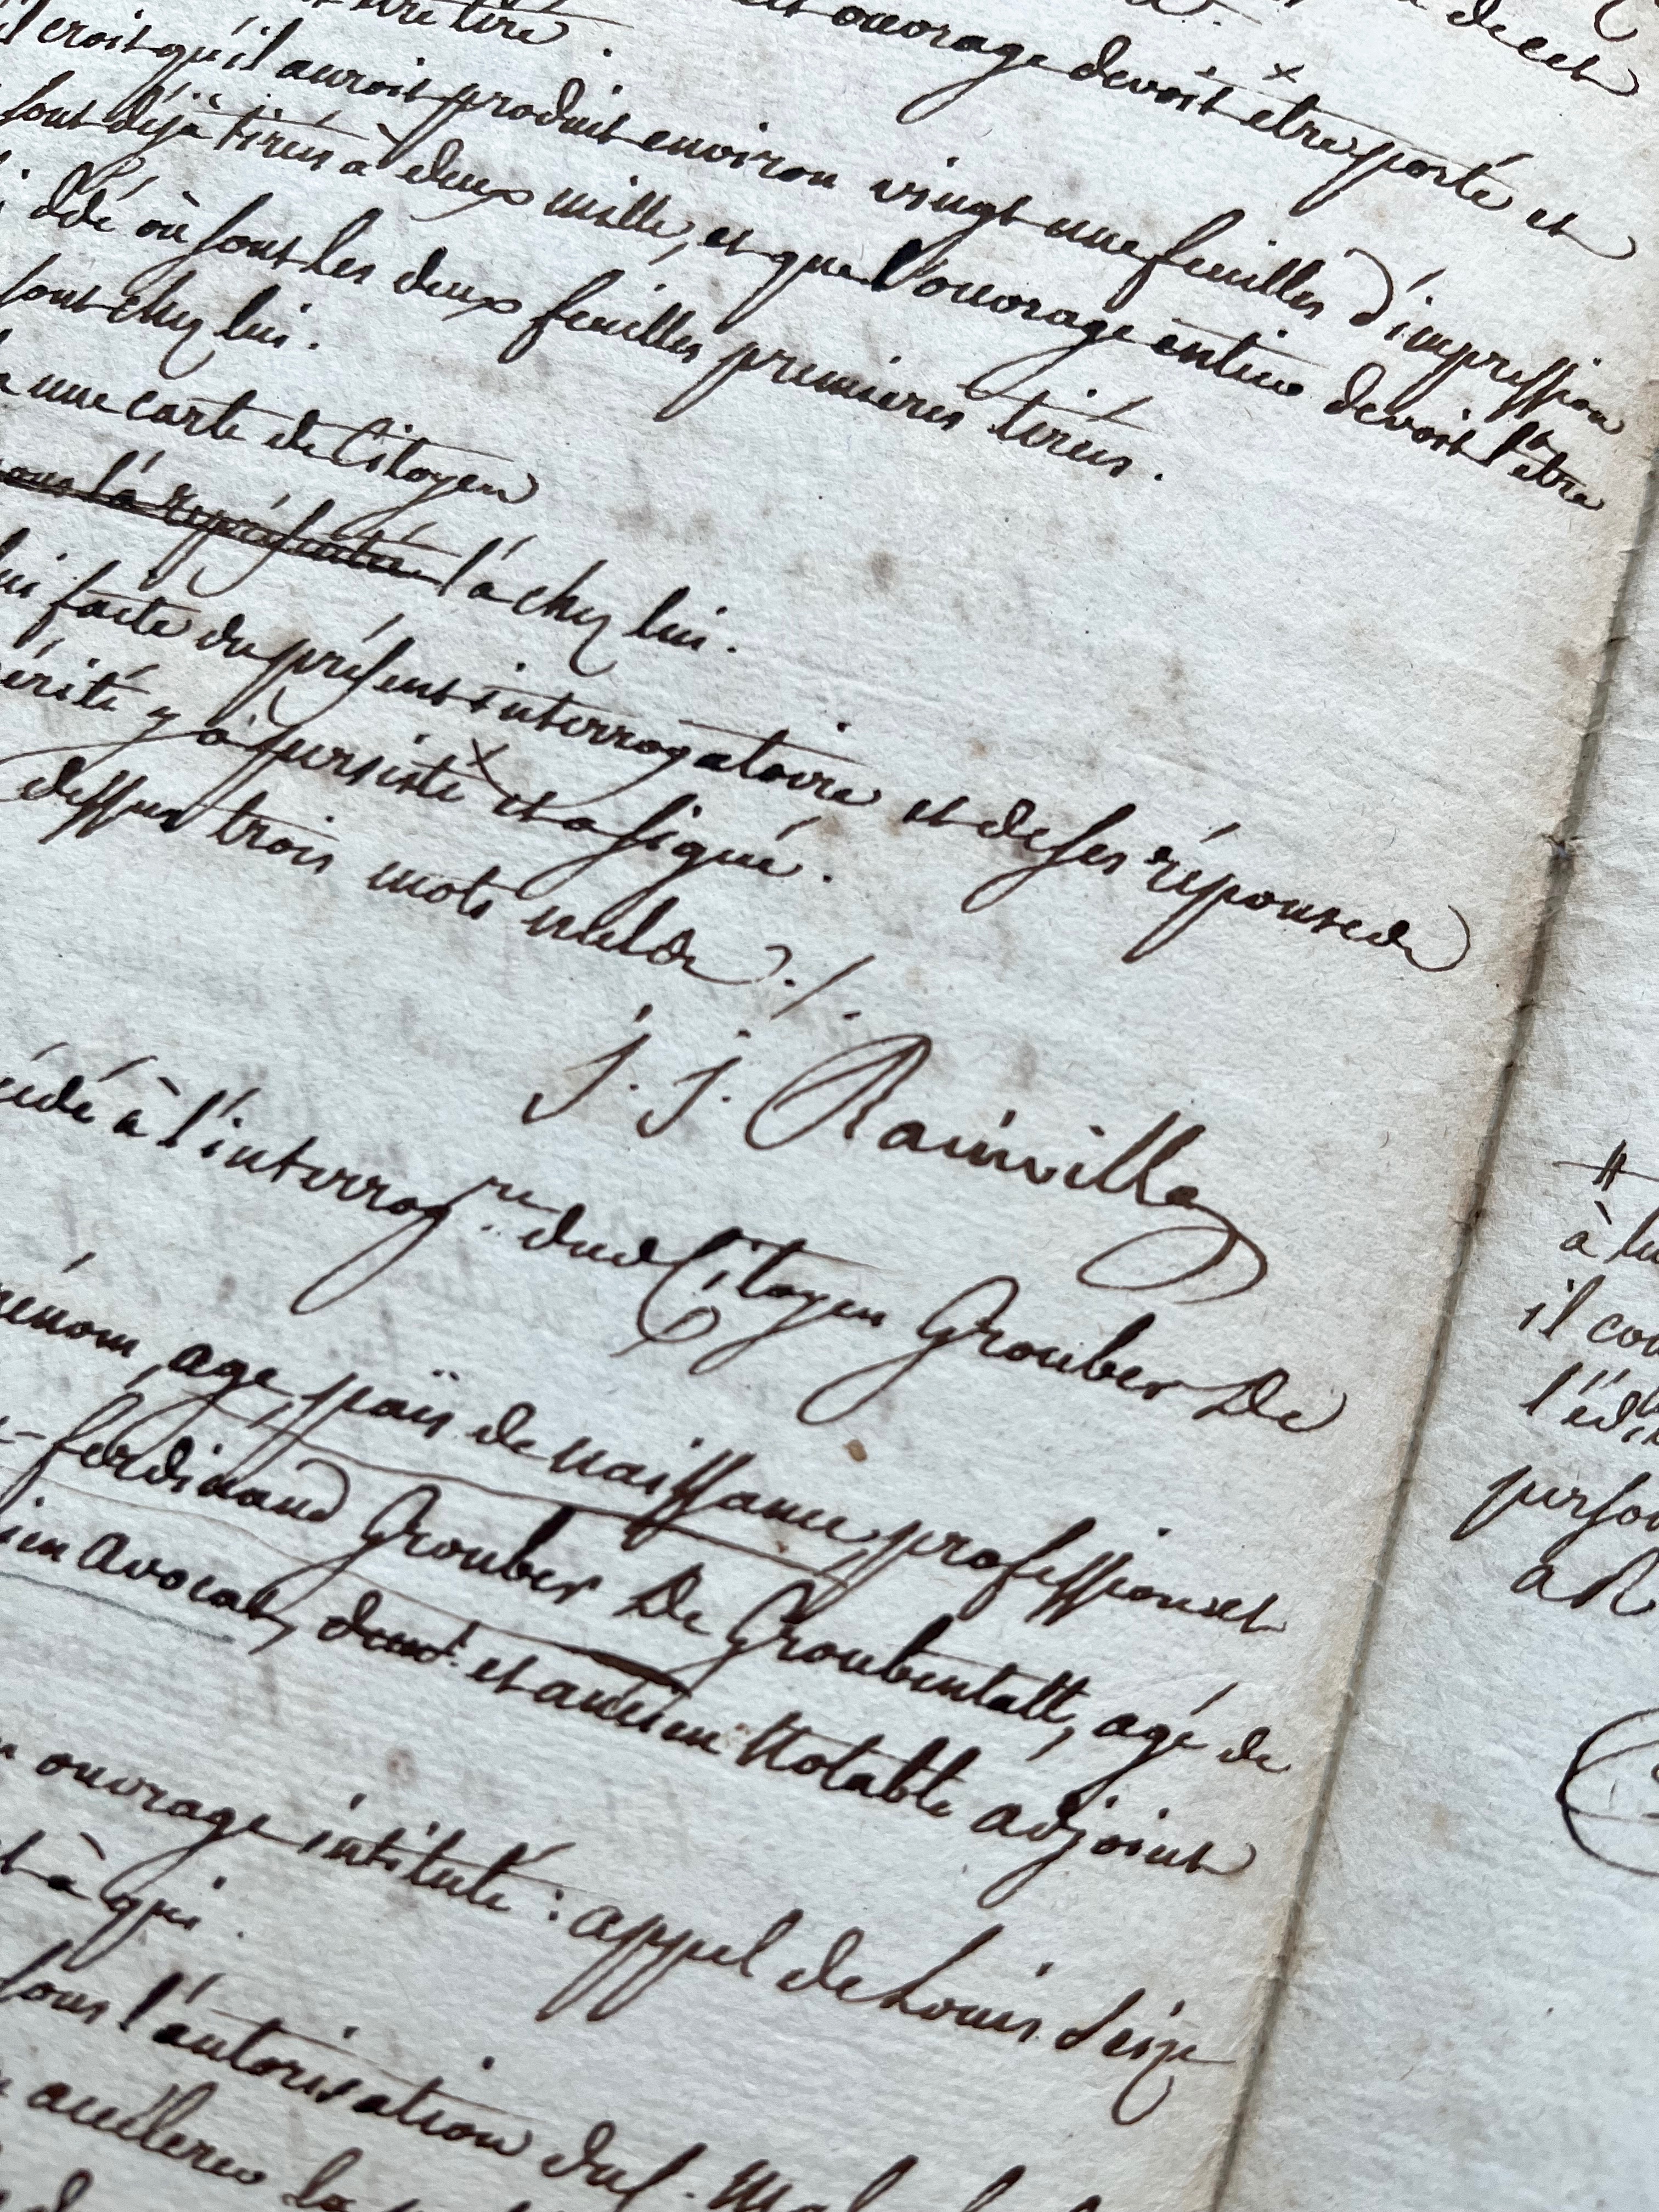 de cet
être tiré.
ouvrage devoit être porté et
il croit qu'il auroit produit environ vingt une feuilles d'impression
sont déjà tirés à deux mille, et que l'ouvrage entier devoit l'être
où sont les deux feuilles premieres tirées.
sont chez lui.
une carte de Citoyen
l'a représentée l'a chez lui.
faite du présent interrogatoire et de ses réponses
vérité y a persisté et a signé.
dessus trois mots nuls ./.
J. J. Rainville
à l'interrog.re dud Citoyen Grouber De
age, païs de naissance, profession et
ferdinand Grouber De Groubentall, agé de
avocat, et ancien Notable adjoint
ouvrage intitulé : appel de Louis Seize
à qui.
sous l'autorisation du
la
à lu
il con
l'édi
person
a R